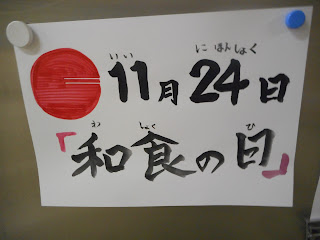 いい にほんしょく
11月24日
わ しょく ひ
「和食の日」